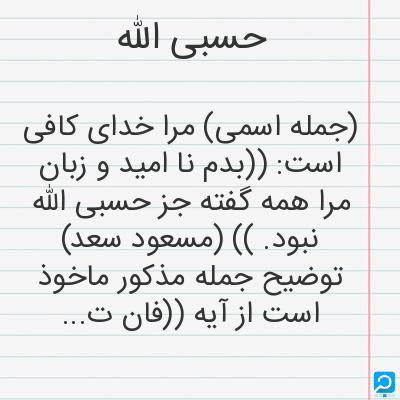 حسبی الله
(جمله اسمی) مرا خدای کافی
است: ((بدم نا امید و زبان
مرا همه گفته جز حسبی الله
نبود. )) (مسعود سعد)
توضیح جمله مذکور ماخوذ
است از آیه ((فان ت...